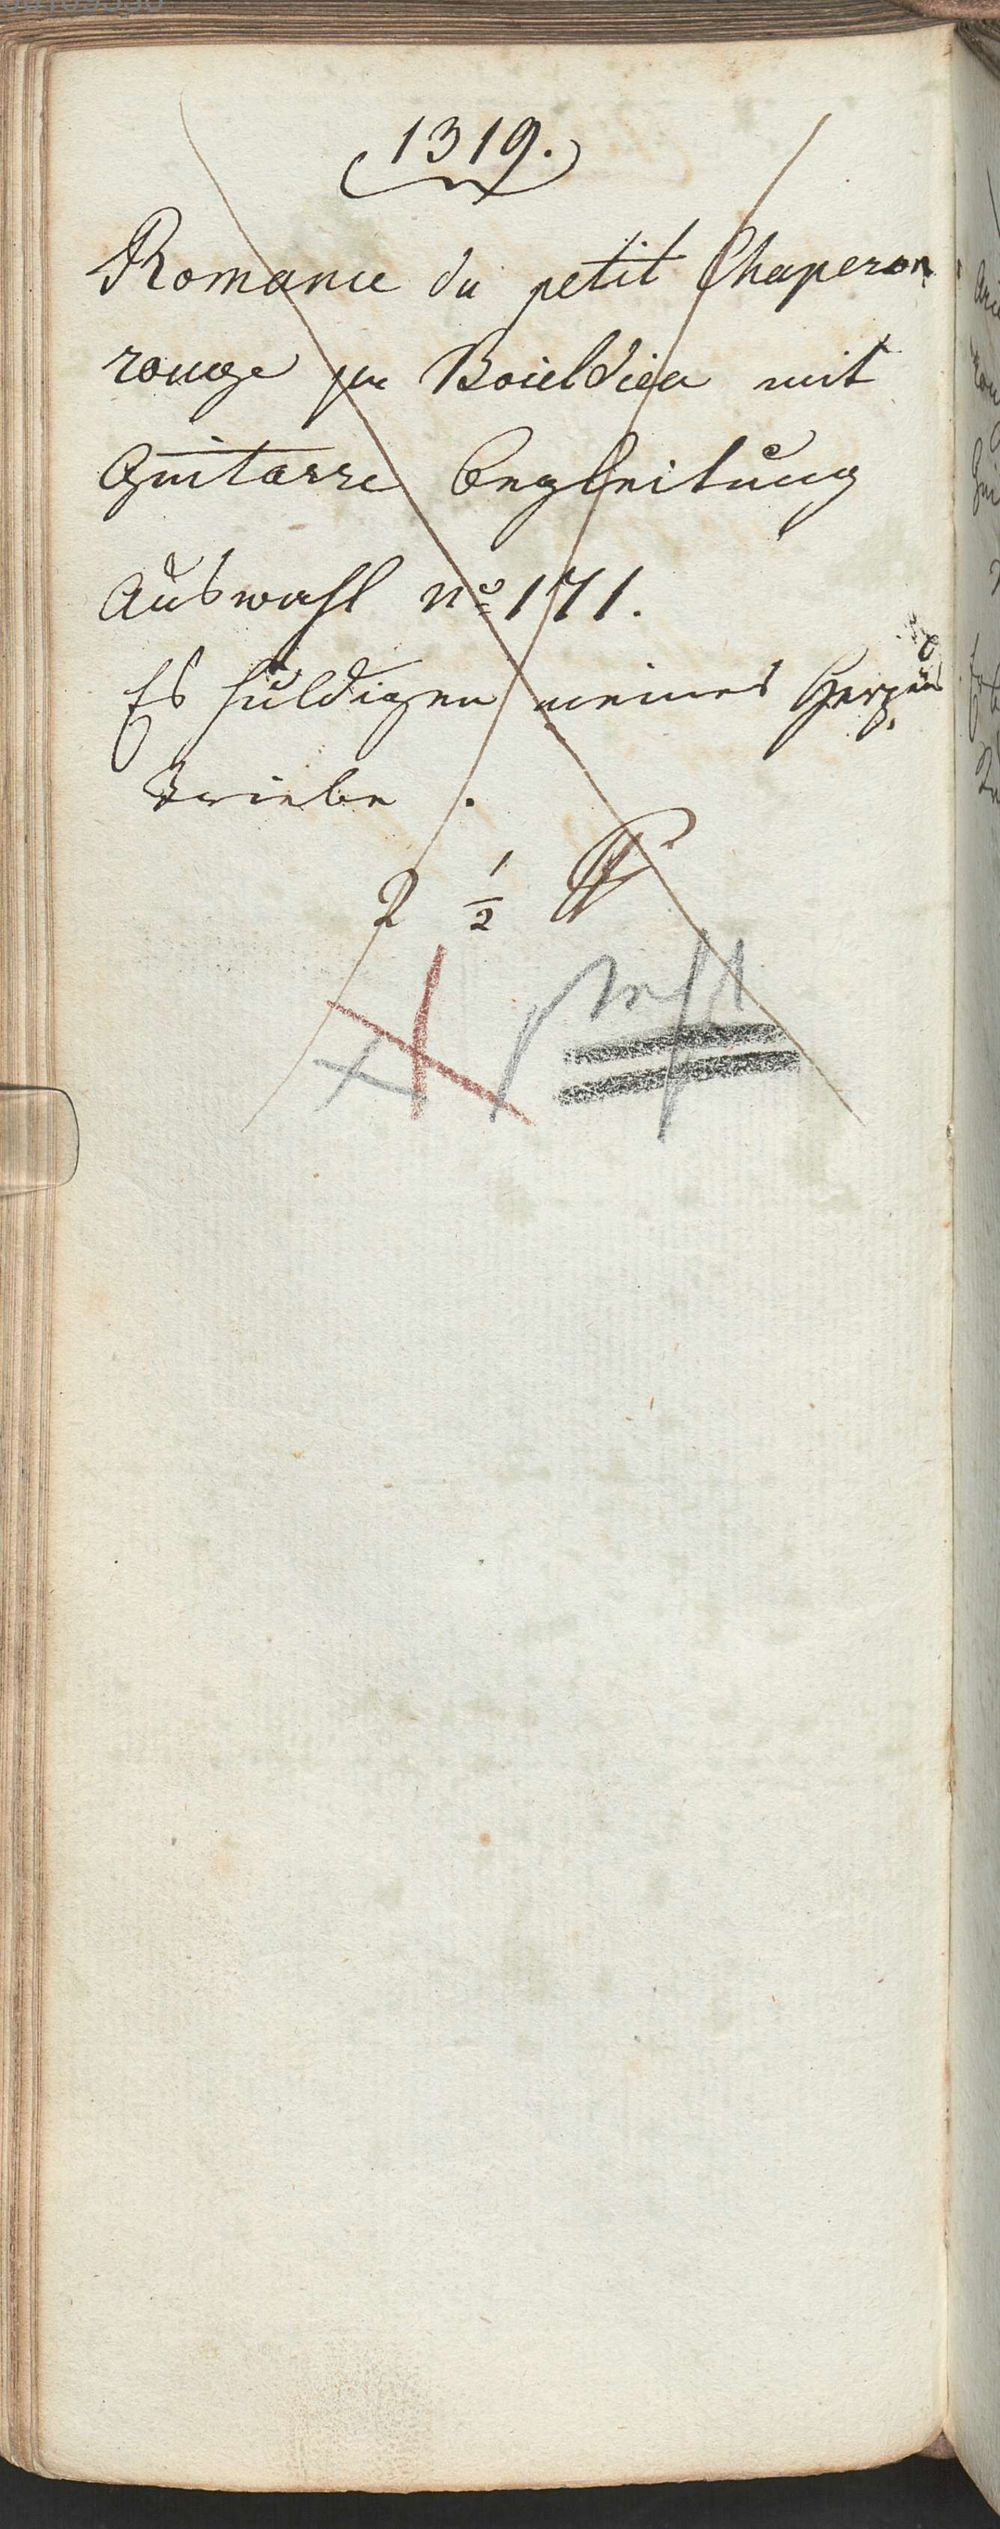 1319.
Romance du petit Chaperon
rouge par Boieldieu mit
Guitarre Begleitung
Auswahl No 171.
Es huldigen meines Herzens
Triebe.
2 1/2